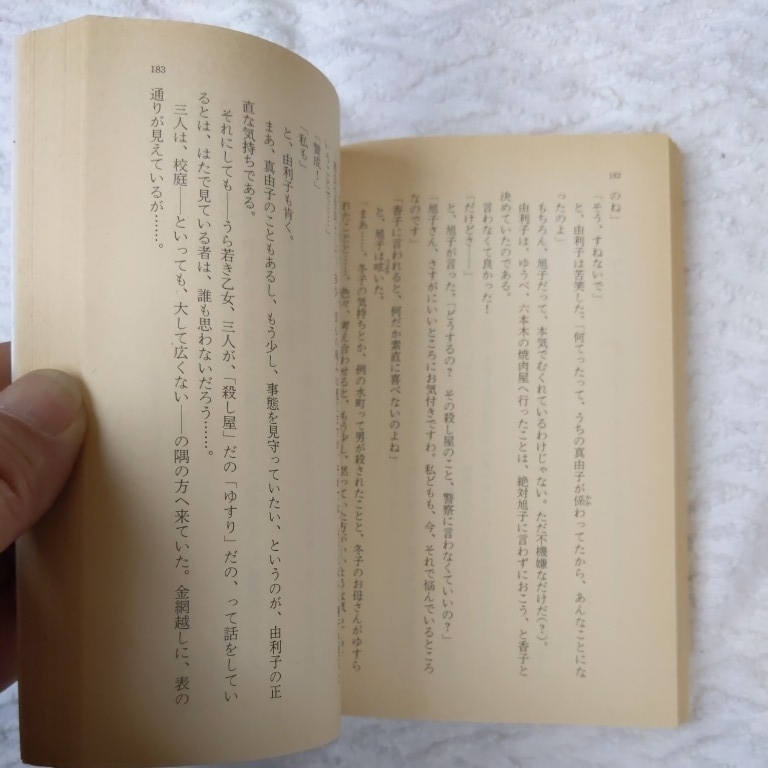 182
のね」
「そう、すねないで」
と、由利子は苦笑した。「何てったって、うちの真由子が係わってたから、あんなことにな
ったのよ」
もちろん、旭子だって、本気でむくれているわけじゃない。ただ不機嫌なだけだ（？）。
由利子は、ゆうべ、六本木の焼肉屋へ行ったことは、絶対旭子に言わずにおこう、と香子と
決めていたのである。
言わなくて良かった！
「だけどさ――」
と、旭子が言った。「どうするの？　その殺し屋のこと、警察に言わなくていいの？」
「旭子さん、さすがにいいところにお気付きですわ。私どもも、今、それで悩んでいるところ
なのです」
「香子に言われると、何だか素直に喜べないのよね」
と、旭子は呟いた。
「まあ――、冬子の気持ちとか、例の水町って男が殺されたことと、冬子のお母さんがゆすら
れたことと――。色々、考え合わせると、もう少し、黙っていた方が
183
「賛成！」
「私も」
と、由利子も肯く。
まあ、真由子のこともあるし、もう少し、事態を見守っていたい、というのが、由利子の正
直な気持ちである。
それにしても――うら若き乙女、三人が、「殺し屋」だの「ゆすり」だの、って話をしてい
るとは、はたで見ている者は、誰も思わないだろう……。
三人は、校庭――といっても、大して広くない――の隅の方へ来ていた。金網越しに、表の
通りが見えているが……。